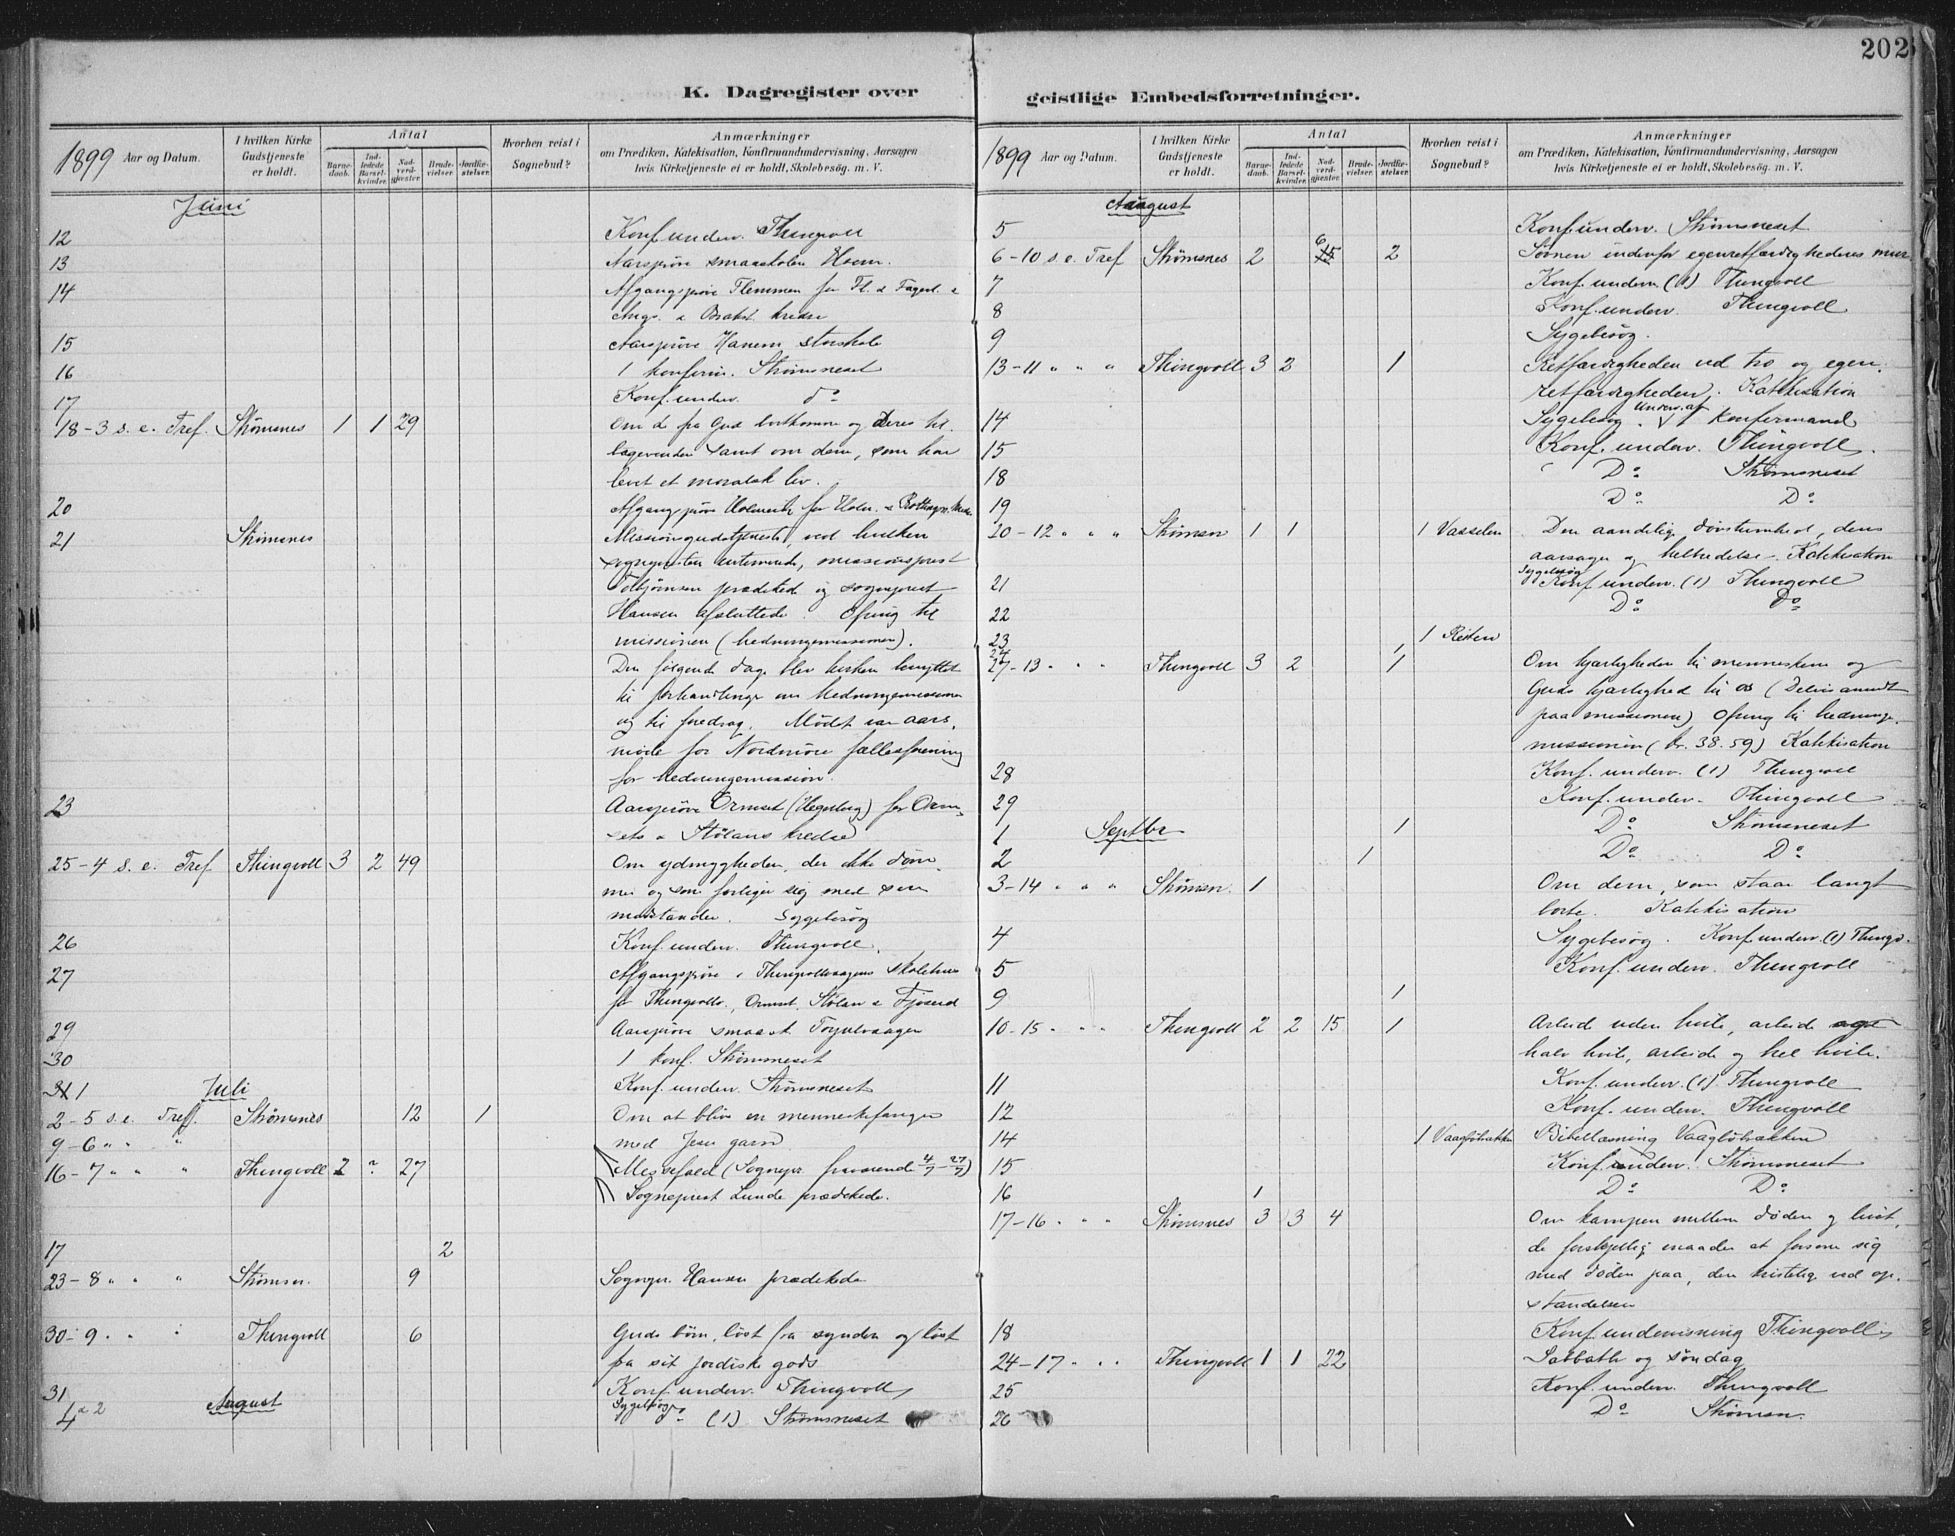 202
K. Dagregister over
1899 Aar og Datum.
I hvilken Kirke Gudstjeneste er holdt.
Antal
Barnedaab.
Indledede Barselkvinder.
Nadverdgjester.
Brudevielser.
Jordfæstelser.
Hvorhen reist i Sognebud?
Anmærkninger
om Prædiken, Katekisation, Konfirmandundervisning, Aarsagen
hvis Kirketjeneste ei er holdt, Skolebesøg. m. V.
Juni
12 Konf. underv. Thingvoll
13 Aarsprøve smaaskolen Hoem.
14 Afgangsprøve Flemmen for Fl. &
kredse
15 Aarsprøve Hanem storskole
16 1 konfirm. Strømsneset
17 Konf. underv. do
18-3 s. e. Tref. Strømsnes 1 1 29 Om de fra Gud bortkomne og Deres til-
bagevenden samt om dem, som har
levet et moralsk liv.
20 Afgangsprøve
21 Strømsnes Missionsgudstjeneste, ved hvilken
sognepresten intimerede, missionsprest
prædiked og sogneprest
Hansen afsluttede. Ofring til
missionen (hedningemissionen).
Den følgende dag blev kirken benyttet
til forhandlinger om hedningemissionen
og til foredrag. Mødet var aars-
møde for Nordmøre fællesforening
for hedningemission.
23 Aarsprøve Ormset (Hegerberg) for Orm-
sets & Stølans kredse
25-4 s. e. Tref Thingvoll 3 2 49 Om ydmygheden, der ikke døm-
mer og som forliger sig med sin
modstander. Sygebesøg
26 Konf. underv. Thingvoll.
27 Afgangsprøve i Thingvollvaagens skolehus
for Thingvollv., Ormset, Stølan & Fjøseid
29 Aarsprøve smaask. Torjulvaagen
30 1 konf. Strømsneset
1 Juli Konf. underv. Strømsneset
2-5 s. e. Tref. Strømsnes 12 1 Om at blive en menneskefanger
9-6 " " " med Jesu garn
16-7 " " " Thingvoll 2 2 27 Messefald (Sognepr. fraværende 4/7-27/7)
Sogneprest Lunde prædikede.
17 2
23-8 " " " Strømsn. 9 Sognepr. Hansen prædikede
30-9 " " " Thingvoll 6 Guds børn, løst fra synden og løst
fra sit jordiske gods
31 Konf. underv. Thingvoll
August
4 & 2 Sygebesøg do (1) Strømsneset
geistlige Embedsforretninger.
1899 Aar og Datum.
I hvilken Kirke Gudstjeneste er holdt.
Antal
Barnedaab.
Indledede Barselkvinder.
Nadverdgjester.
Brudevielser.
Jordfæstelser.
Hvorhen reist i Sognebud?
Anmærkninger
om Prædiken, Katekisation, Konfirmandundervisning, Aarsagen
hvis Kirketjeneste ei er holdt, Skolebesøg. m. V.
August
5 Konf. underv. Strømsneset
6-10 s. e. Tref Strømsnes 2 6 2 Sønnen indenfor egenretfærdighedens mur
7 Konf. underv. (1) Thingvoll
8 Konf. underv. Thingvoll
9 Sygebesøg.
13-11 " " " Thingvoll 3 2 1 Retfærdigheden ved tro og egen-
retfærdigheden. Katekisation
14 Sygebesøg. Underv. af 1 konfirmand
15 Konf. underv. Thingvoll.
18 Do Strømsneset
19 Do Do
20-12 " " " Strømsn 1 1 1 Vasselen Den aandelige døvstumhed, dens
aarsager og helbredelse. Katekisation
21 Sygebesøg Konf. underv. (1) Thingvoll
22 Do Do
23 1 Reiten
24 1
27-13 " " Thingvoll 3 2 1 Om kjærligheden til menneskene og
Guds kjærlighed til os (Delvis anvendt
paa missionen) Ofring til hedninge-
missionen (kr. 38.59) Katekisation
28 Konf. underv. (1) Thingvoll
29 Konf. underv. Thingvoll
1 Septbr 1 Do Strømsneset
2 1 Do Do
3-14 " " " Strømsn. 1 Om dem, som staar langt
borte. Katekisation
4 Sygebesøg. Konf. underv. (1) Thingv.
5 Konf. underv. Thingvoll
9 1
10-15 " " Thingvoll 2 2 15 1 Arbeid uden hvile, arbeide
halv hvile, arbeide og hel hvile.
11 Konf. underv. (1) Thingvoll
12 Konf. underv. Thingvoll
14 1 Vaagbøbakken Bibellæsning Vaagbøbakken
15 Konf. underv. Strømsneset
16 1 Do Do
17-16 " " Strømsnes 3 3 4 Om kampen mellem døden og livet,
de forskjellige maader at forsone sig
med døden paa, den kristelige ved op-
standelsen
18 Konf. undervisning Thingvoll
24-17 " " Thingvoll 1 1 22 Sabbath og søndag
25 Konf. underv. Thingvoll
26 Do Strømsn.